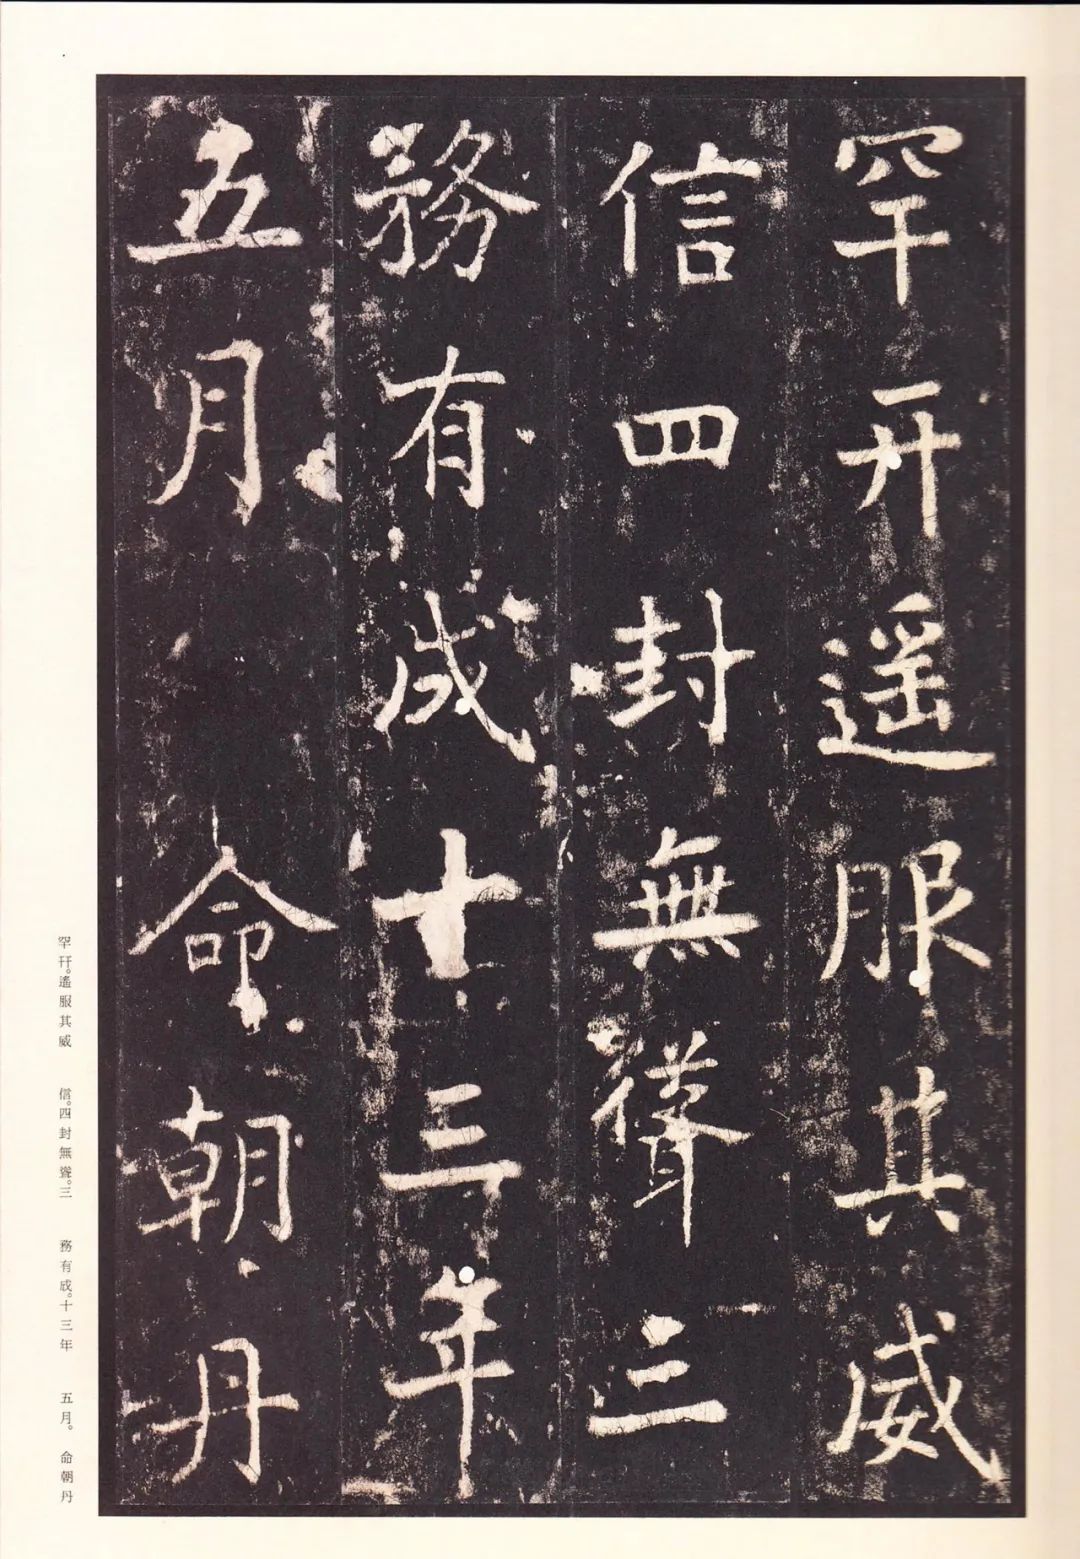 罕开遥服其威
信四封無聳三
務有成十三年
五月 命朝丹
罕幵。遙服其威 信。四封無聳。三 務有成。十三年 五月。 命朝丹